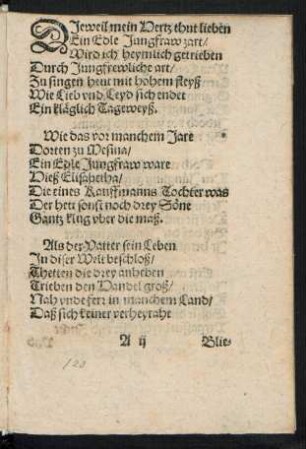 DJeweil mein Hertz thut lieben
Ein Edle Jungfraw zart/
Wird ich heymlich getrieben
Durch Jungfrewliche art/
Zu singen heut mit hohem fleyß
Wie Lieb vnd Leyd sich endet
Ein kläglich Tageweyß.
Wie das vor manchem Jare
Dorten zu Mesina/
Ein Edle Jungfraw ware
Hieß Elisabetha/
Die eines Kauffmanns Tochter was
Der hett sonst noch drey Söne
Gantz klug vber die maß.
Als der Vatter sein Leben
In diser Welt beschloß/
Thetten die drey anheben
Trieben den Handel groß/
Nah vnde ferr in manchem Land/
Daß sich keiner verheyraht
A ij Blie-
123